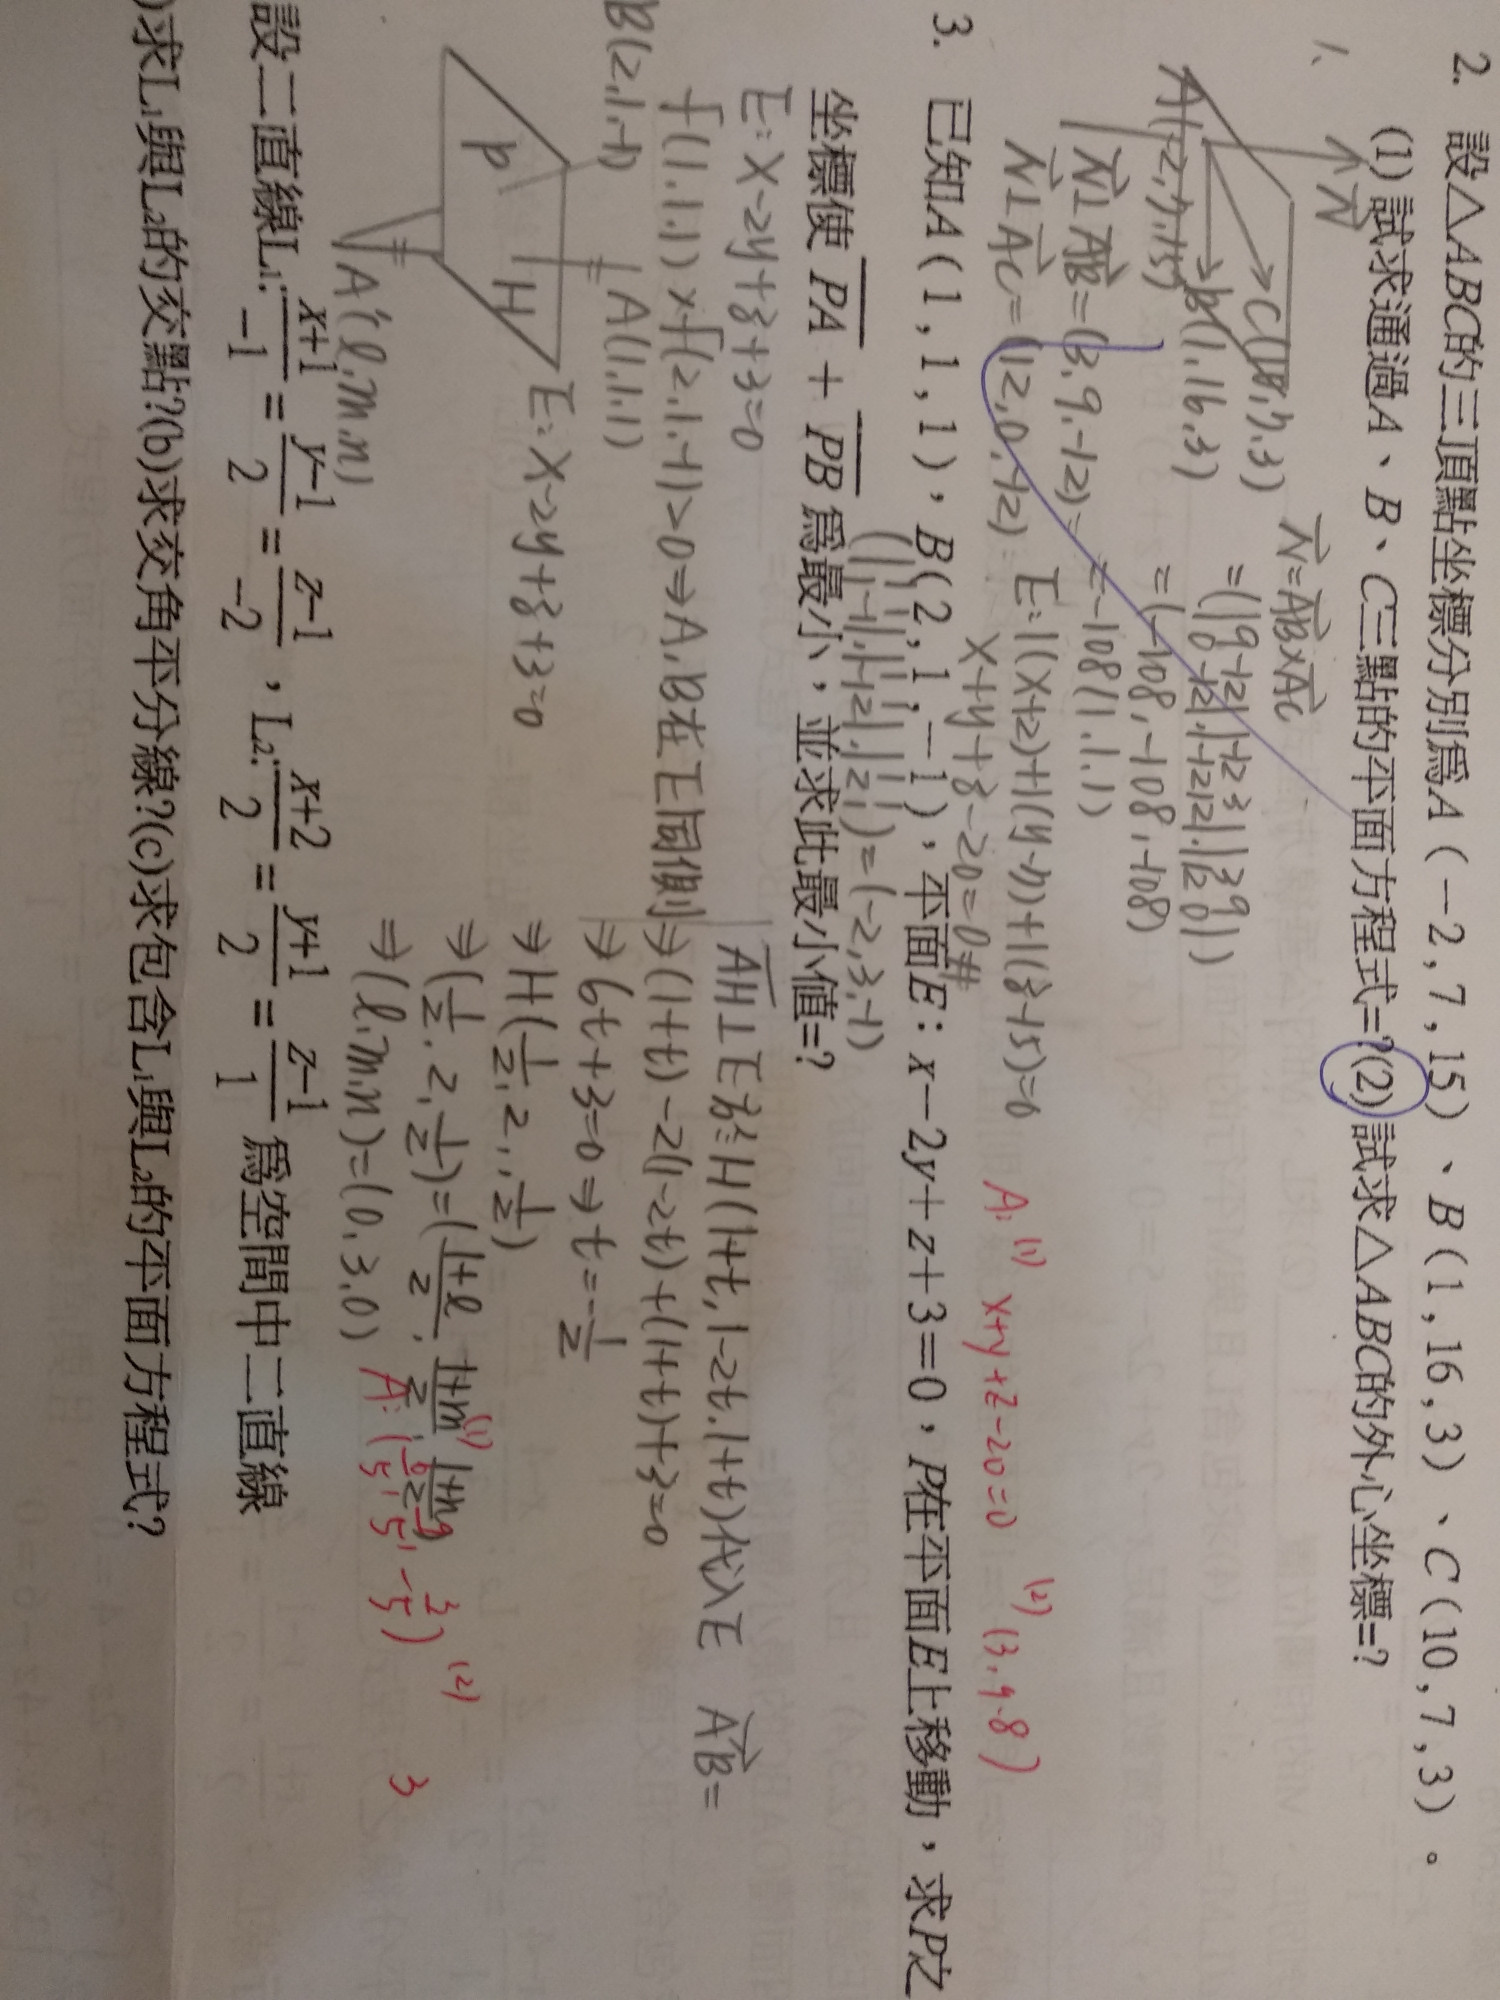 2. 設△ABC的三頂點坐標分別為A(-2,7,15)、B(1,16,3)、C(10,7,3)。
(1)試求通過A、B、C三點的平面方程式=?(2)試求△ABC的外心坐標=?
1.
N
C(10,7,3)
B(1,16,3)
A(-2,7,15)
N⊥AB=(3,9,-12)
N⊥AC=(12,0,-12)
N=AB×AC
=(|9 -12| |-12 3| |3 9|
|0 -12|,|-12 12|,|12 0|)
=(-108,-108,-108)
=-108(1,1,1)
E:1(x+2)+1(y-7)+1(z-15)=0
x+y+z-20=0#
A:(1) x+y+z-20=0 (2) (3,9,8)
3. 已知A(1,1,1),B(2,1,-1),平面E:x-2y+z+3=0,P在平面E上移動,求P之
坐標使 PA + PB 為最小,並求此最小值=?
=(-2,3,-1)
E:x-2y+z+3=0
f(1,1,1)×f(2,1,-1)>0⇒A,B在E同側
B(2,1,-1)
A(1,1,1)
P
H
E:x-2y+z+3=0
A'(l,m,n)
AH⊥E 設H(1+t,1-2t,1+t)代入E
⇒(1+t)-2(1-2t)+(1+t)+3=0
⇒6t+3=0⇒t=-1/2
⇒H(1/2,2,1/2)
⇒(1/2,2,1/2)=(1+l/2,1+m/2,1+n/2)
⇒(l,m,n)=(0,3,0)
AB=
A:(1) (6/5,9/5,-3/5) (2) 3
設二直線L₁:x+1/-1=y-1/2=z-1/-2,L₂:x+2/2=y+1/2=z-1/1 為空間中二直線
)求L₁與L₂的交點?(b)求交角平分線?(c)求包含L₁與L₂的平面方程式?